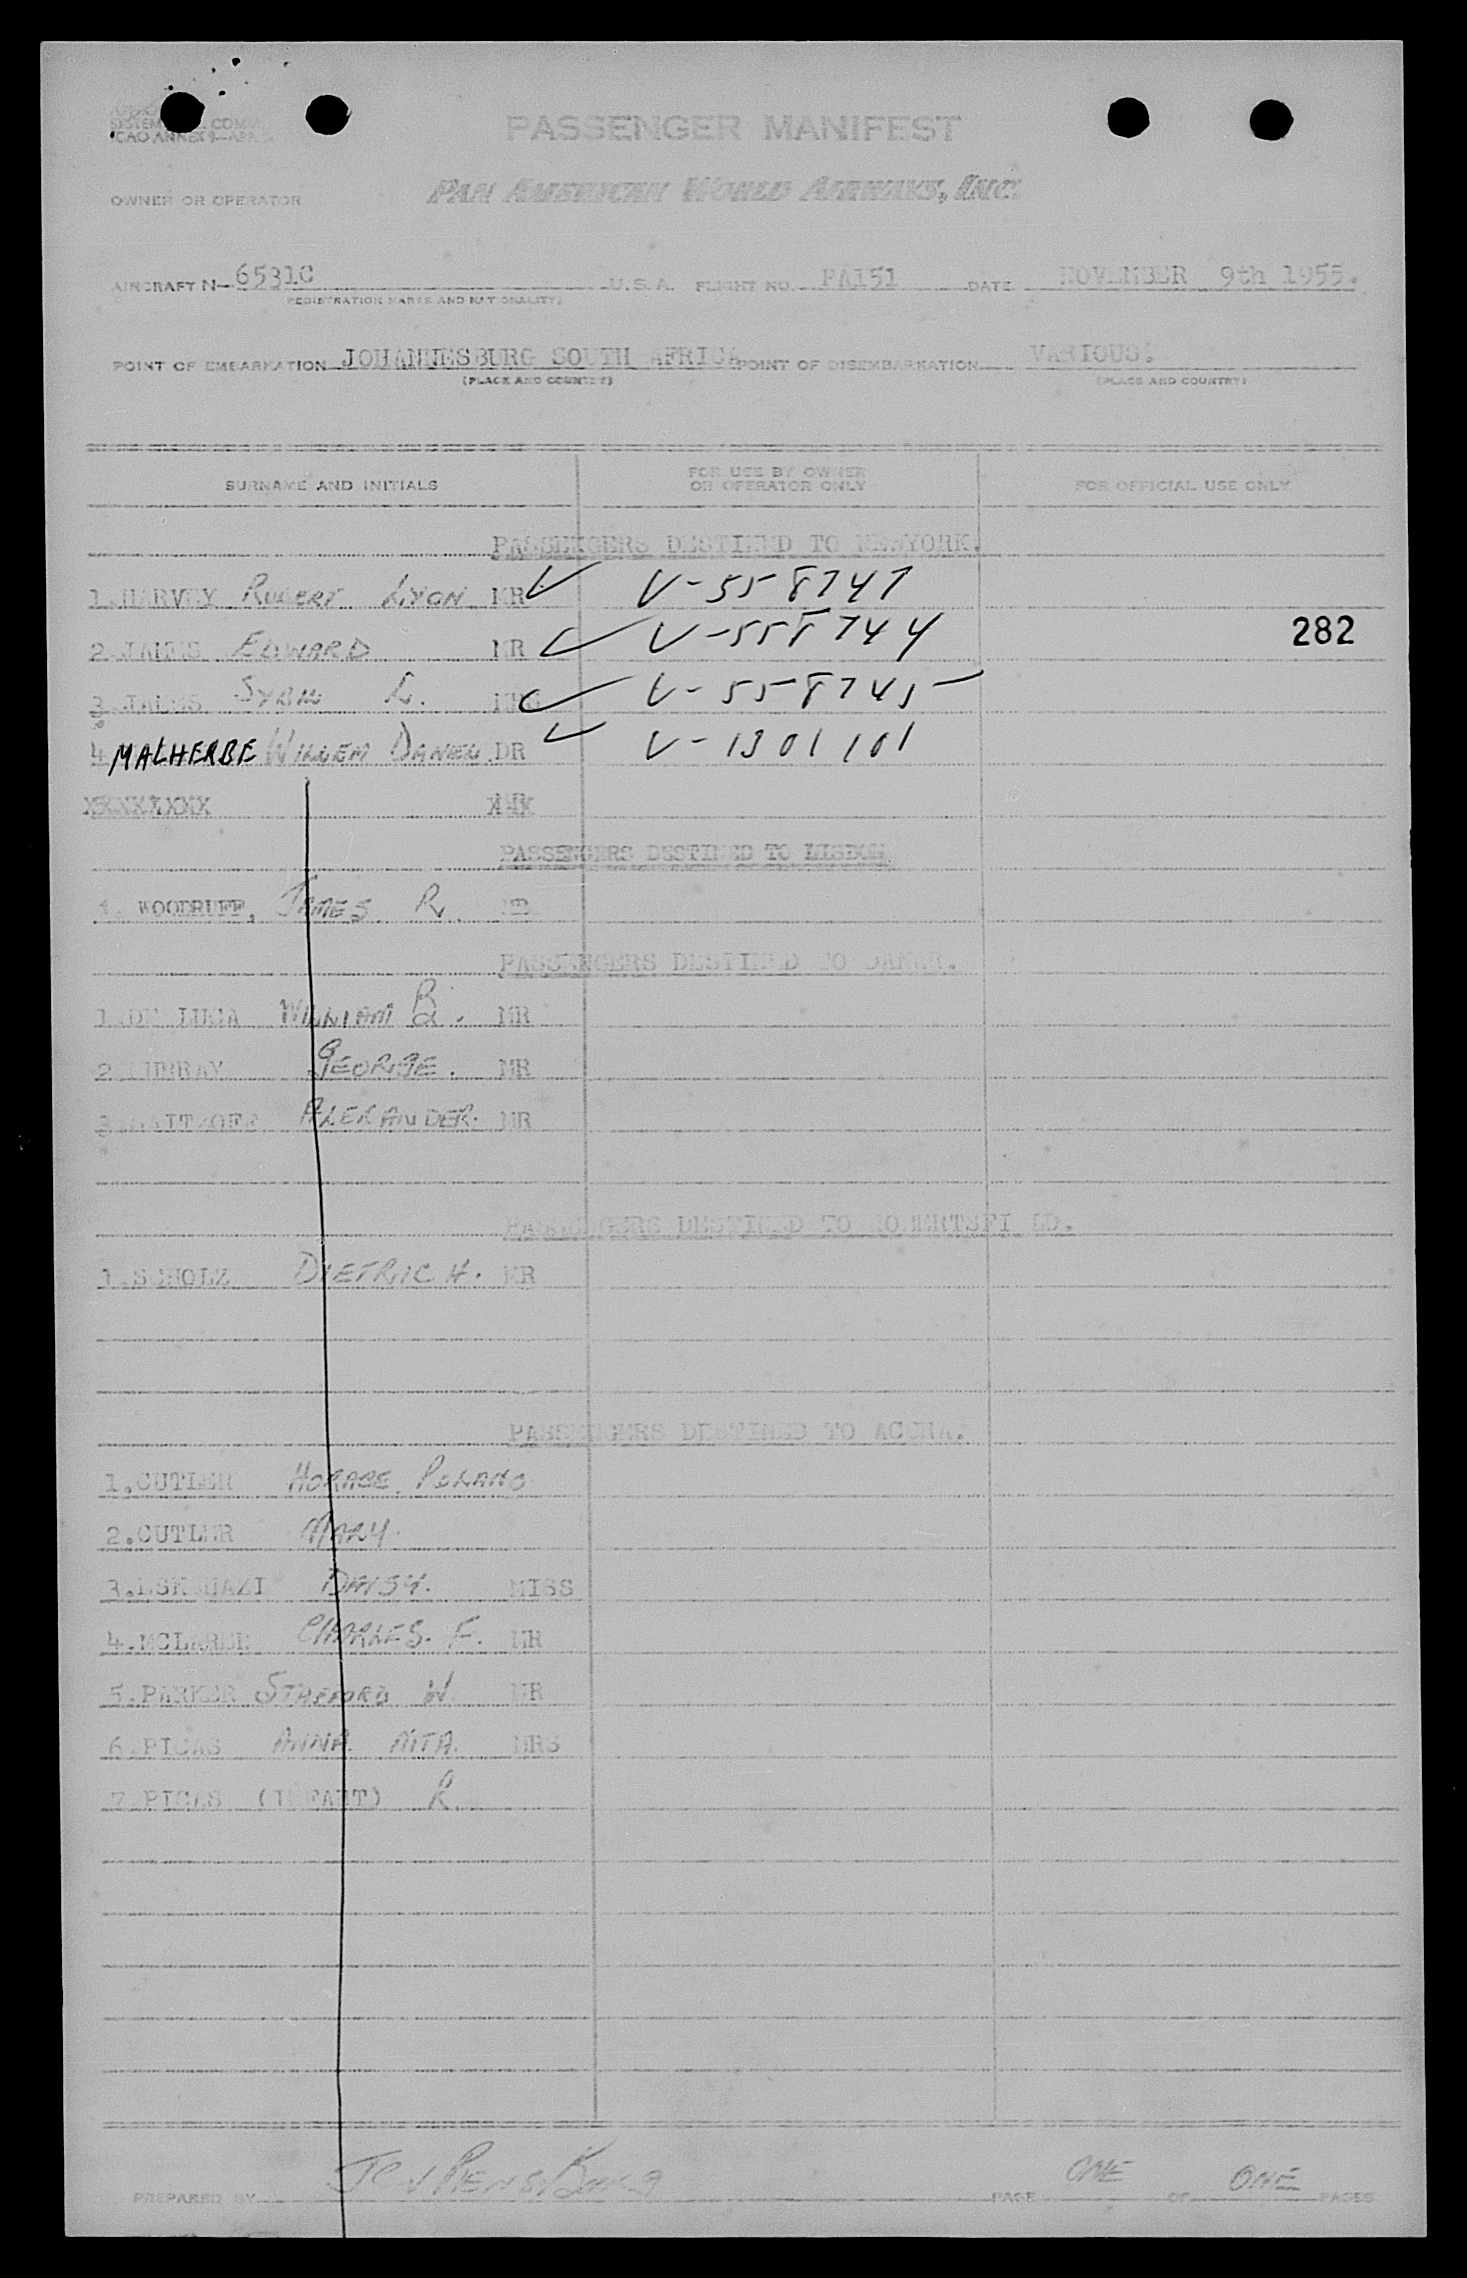 PASSENGER MANIFEST
OWNER OR OPERATOR PAN AMERICAN WORLD AIRWAYS, INC.
AIRCRAFT N- 6531C U.S.A. FLIGHT NO. PA151 DATE NOVEMBER 9th 1955.
REGISTRATION MARKS AND NATIONALITY)
POINT OF EMBARKATION JOHANNESBURG SOUTH AFRICA POINT OF DISEMBARKATION VARIOUS.
(PLACE AND COUNTRY) (PLACE AND COUNTRY)
SURNAME AND INITIALS FOR USE BY OWNER OR OPERATOR ONLY FOR OFFICIAL USE ONLY
PASSENGERS DESTINED TO NEWYORK.
1.HARVEY ROBERT LYON MR V-558747
2.JAMES EDWARD MR V-558744 282
3.JAMES L. V-558745
4. MALHERBE WILLEM DANIEL DR V-1301101
PASSENGERS DESTINED TO LISBON
1. WOODRUFF, JAMES R. MR
PASSENGERS DESTINED TO DAKAR.
1.DE LUCA WILLIAM MR
2. MURRAY GEORGE. MR
3. ALEXANDER. MR
PASSENGERS DESTINED TO ROBERTSFIELD.
1.SCHOLZ DIETRICH. MR
PASSENGERS DESTINED TO ACCRA.
1.CUTLER HORACE
2.CUTLER MARY.
3. DAISY. MISS
4.MCLAREN CHARLES. F. MR
5.PARKER STAFFORD W. MR
6.PICAS ANNA RITA. MRS
7.PICAS (INFANT) R.
PREPARED BY PAGE ONE OF ONE PAGES